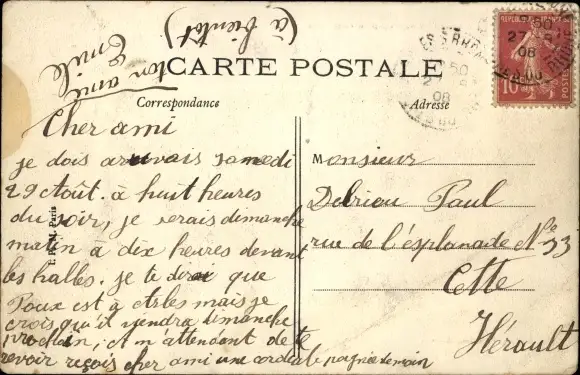 (à bientôt)
ton ami
Emile
CARTE POSTALE
Correspondance
Adresse
REPUBLIQUE FRANÇAISE
10
POSTES
27
08
Cher ami
je dois arrivais samedi
29 Août. à huit heures
du soir, je serais dimanche
matin à dix heures devant
les halles. je te dirai que
Poux est à Arles mais je
crois qu'il viendra dimanche
prochain, en attendant de te
revoir reçois cher ami une cordiale poignée de main
Monsieur
Delrieu Paul
rue de l'esplanade No 33
Cette
Hérault